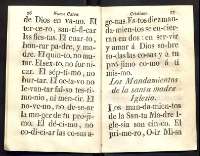 26 Nuevo Caton
de Dios en va-no. El
ter-ce-ro, san-ti-fi-car
las fies-tas. El cuar-to,
hon-rar pa-dre, y ma-
dre. El quin-to, no ma-
tar. El sex-to, no for-ni-
car. El sép-ti-mo, no
hur-tar. El oc-ta-vo no
le-van-tar fal-so tes-ti-
mo-nio, ni men-tir. El
no-ve-no, no de-se-ar
la mu-ger de tu pro-ji-
mo. El dé-ci-mo, no
co-di-ci-ar las co-sas a-
Cristiano. 27
ge-nas. Es-tos diez man-
da-mien-tos se en-cier-
ran en dos: en ser-vir,
y amar á Dios so-bre
to-das las co-sas y á tu
pró-jimo co-mo á ti
mis-mo.
Los Mandamientos
de la santa madre
Iglesia.
Los man-da-mien-tos
de la San-ta Ma-dre I-
gle-sia son cin-co. El
pri-me-ro, O-ir Mi-sa